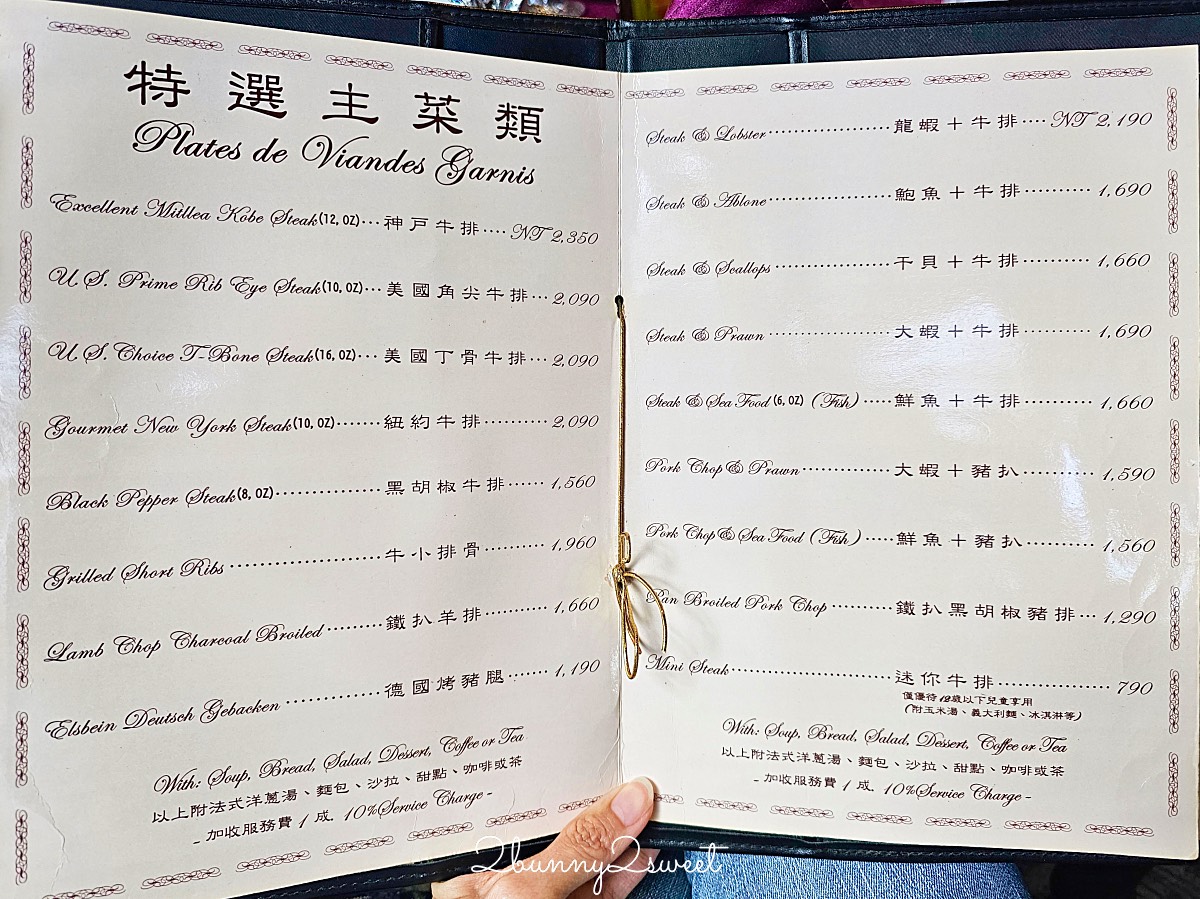 特選主菜類
Plates de Viandes Garnis
Excellent Mitllea Kobe Steak(12, OZ)···神戶牛排····NT 2,350
U.S. Prime Rib Eye Steak(10, OZ)···美國角尖牛排···2,090
U.S. Choice T-Bone Steak(16, OZ)···美國丁骨牛排···2,090
Gourmet New York Steak(10, OZ)·······紐約牛排··········2,090
Black Pepper Steak(8, OZ)···············黑胡椒牛排······1,560
Grilled Short Ribs·····················牛小排骨··········1,960
Lamb Chop Charcoal Broiled·········鐵扒羊排··········1,660
Elsbein Deutsch Gebacken·············德國烤豬腿·······1,190
With: Soup, Bread, Salad, Dessert, Coffee or Tea
以上附法式洋蔥湯、麵包、沙拉、甜點、咖啡或茶
- 加收服務費 1 成. 10%Service Charge -
Steak & Lobster···················龍蝦＋牛排····NT 2,190
Steak & Ablone···················鮑魚＋牛排··········1,690
Steak & Scallops··················干貝＋牛排··········1,660
Steak & Prawn···················大蝦＋牛排··········1,690
Steak & Sea Food(6, OZ) (Fish)·····鮮魚＋牛排··········1,660
Pork Chop & Prawn··············大蝦＋豬扒··········1,590
Pork Chop & Sea Food (Fish)·····鮮魚＋豬扒··········1,560
Pan Broiled Pork Chop··········鐵扒黑胡椒豬排···1,290
Mini Steak·························迷你牛排················790
僅優待12歲以下兒童享用
(附玉米湯、義大利麵、冰淇淋等)
With: Soup, Bread, Salad, Dessert, Coffee or Tea
以上附法式洋蔥湯、麵包、沙拉、甜點、咖啡或茶
- 加收服務費 1 成. 10%Service Charge -
2bunny2sweet